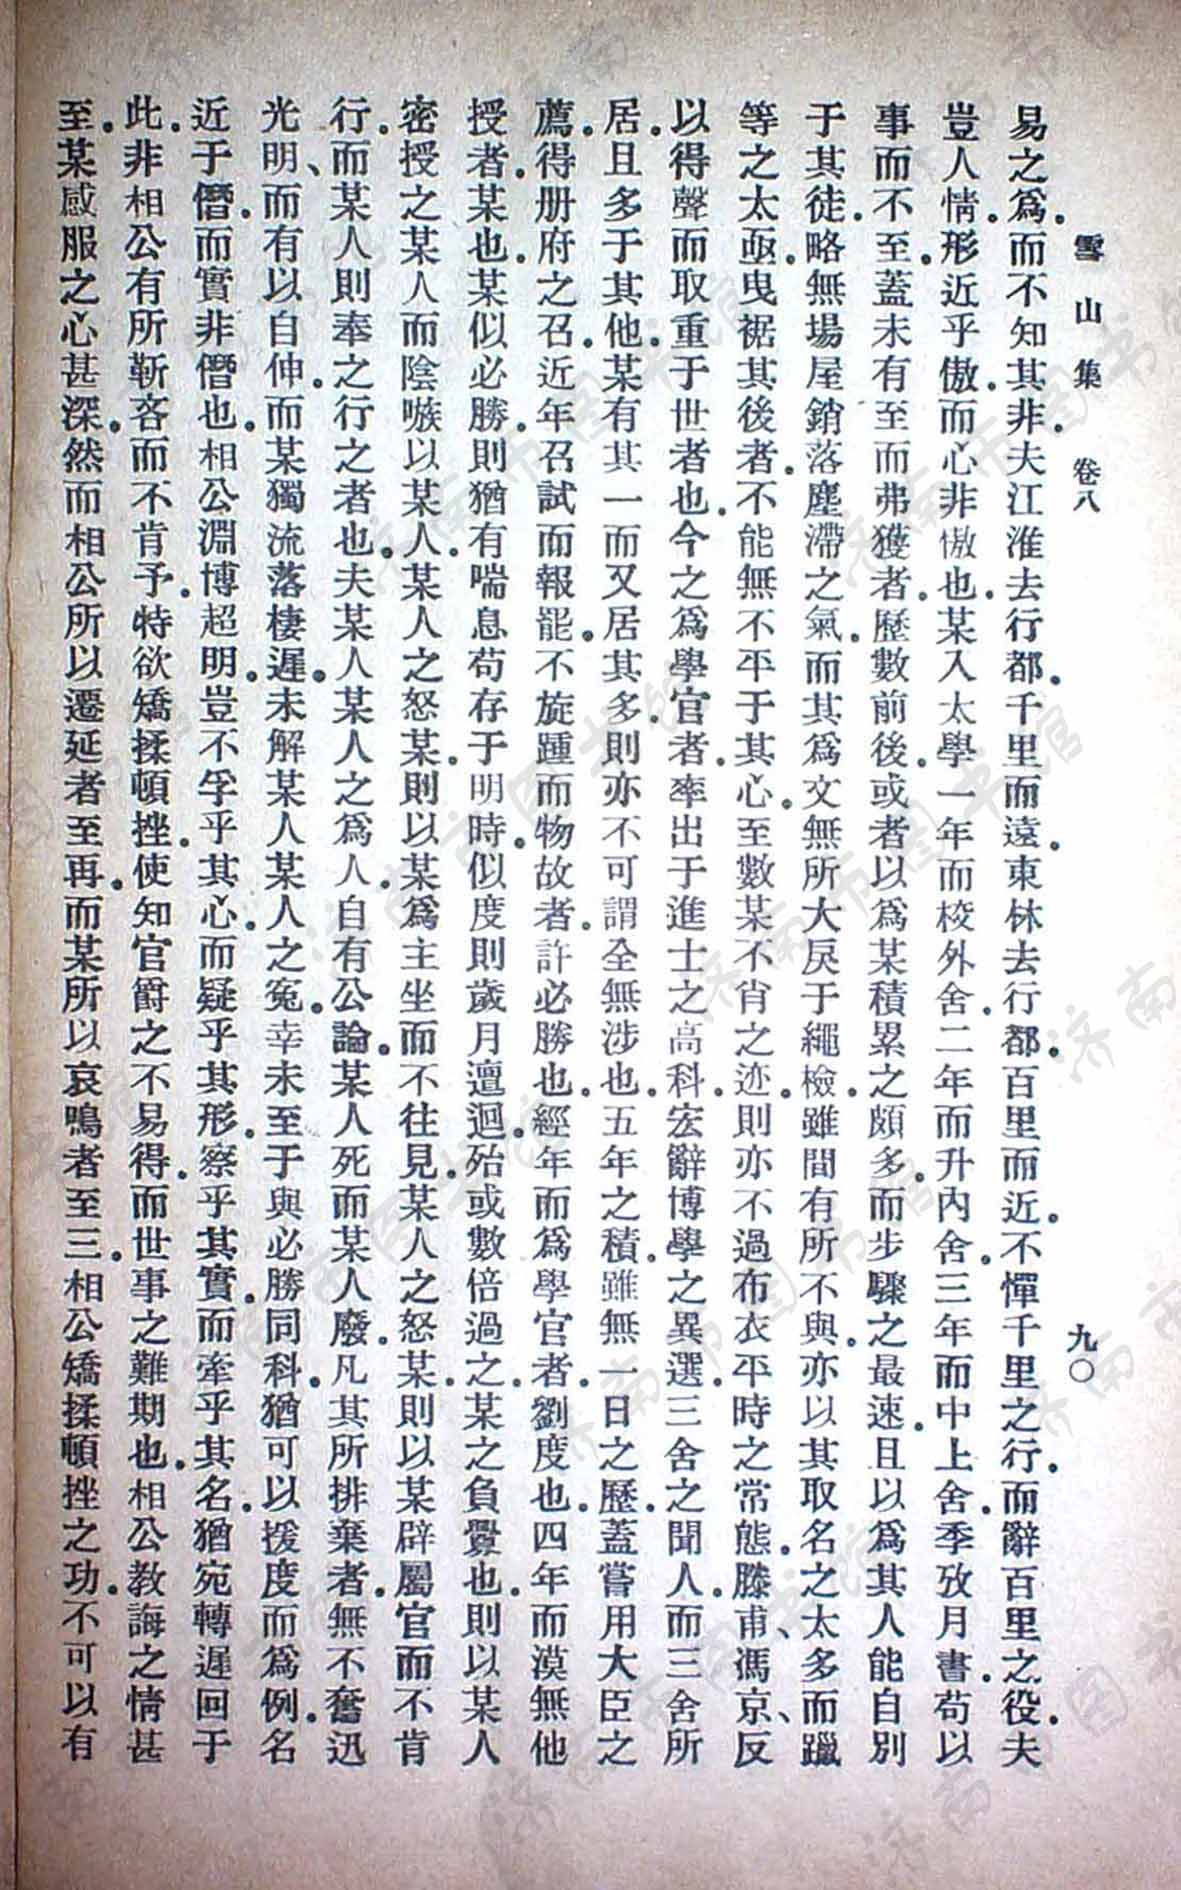 雪山集 卷八 九〇
易之爲。而不知其非。夫江淮去行都。千里而遠。東林去行都。百里而近。不憚千里之行。而辭百里之役。夫
豈人情。形近乎傲。而心非傲也。某入太學。一年而校外舍。二年而升內舍。三年而中上舍。季攷月書。苟以
事而不至。蓋未有至而弗獲者。歷數前後。或者以爲某積累之頗多。而步驟之最速。且以爲其人能自別
于其徒。略無場屋銷落塵滯之氣。而其爲文無所大戾于繩檢。雖間有所不與。亦以其取名之太多而躐
等之太亟。曳裾其後者。不能無不平于其心。至數某不肖之迹。則亦不過布衣平時之常態。滕甫、馮京、反
以得聲而取重于世者也。今之爲學官者。率出于進士之高科。宏辭博學之異選。三舍之聞人。而三舍所
居。且多于其他。某有其一而又居其多。則亦不可謂全無涉也。五年之積。雖無一日之歷。蓋嘗用大臣之
薦。得册府之召。近年召試而報罷。不旋踵而物故者。許必勝也。經年而爲學官者。劉度也。四年而漠無他
授者。某也。某似必勝。則猶有喘息苟存于明時。似度則歲月邅迴。殆或數倍過之。某之負釁也。則以某人
密授之某人而陰嗾以某人。某人之怒某。則以某爲主坐而不往見。某人之怒某。則以某辟屬官而不肯
行。而某人則奉之行之者也。夫某人某人之爲人。自有公論。某人死而某人廢。凡其所排棄者。無不奮迅
光明、而有以自伸。而某獨流落棲遲。未解某人某人之冤。幸未至于與必勝同科。猶可以援度而爲例。名
近于僭。而實非僭也。相公淵博超明。豈不孚乎其心。而疑乎其形。察乎其實。而牽乎其名。猶宛轉遲回于
此。非相公有所靳吝而不肯予。特欲矯揉頓挫。使知官爵之不易得。而世事之難期也。相公教誨之情甚
至。某感服之心甚深。然而相公所以遷延者至再。而某所以哀鳴者至三。相公矯揉頓挫之功。不可以有